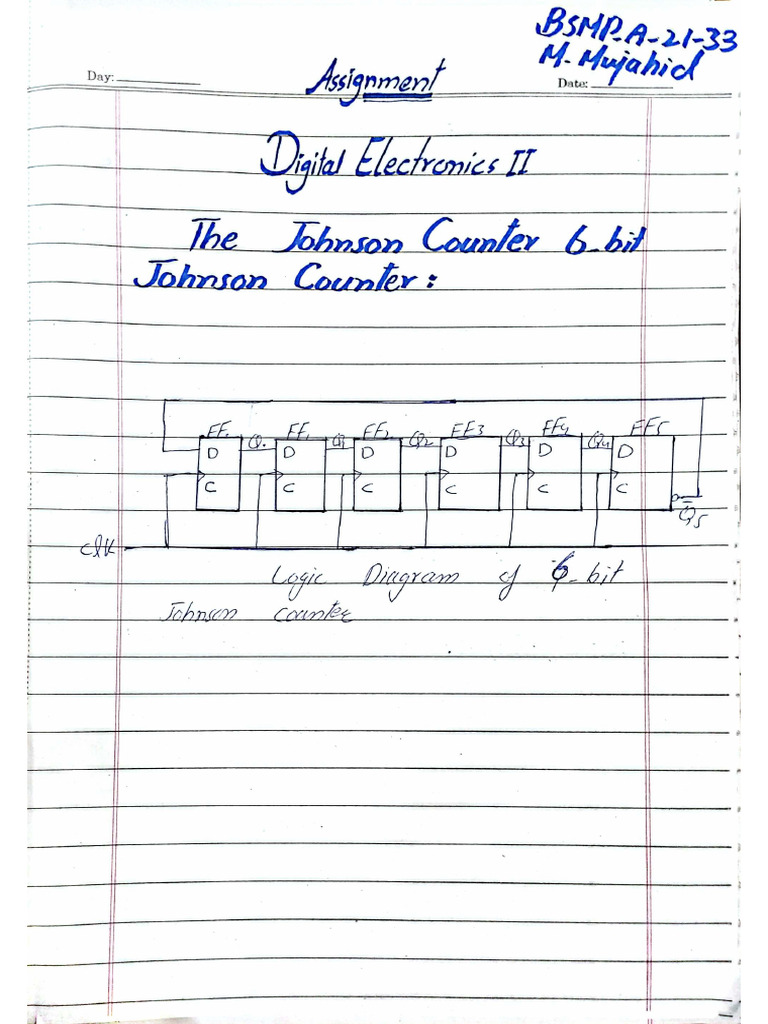 BSMP-A-21-33
M. Mujahid
Day:
Assignment
Date:
Digital Electronics II
The Johnson Counter 6-bit
Johnson Counter:
FF₀ Q₀ FF₁ Q₁ FF2 Q2 FF3 Q3 FF4 Q4 FF5
D D D D D D
C C C C C C
Q̅5
Clk
Logic Diagram of 6-bit
Johnson counter